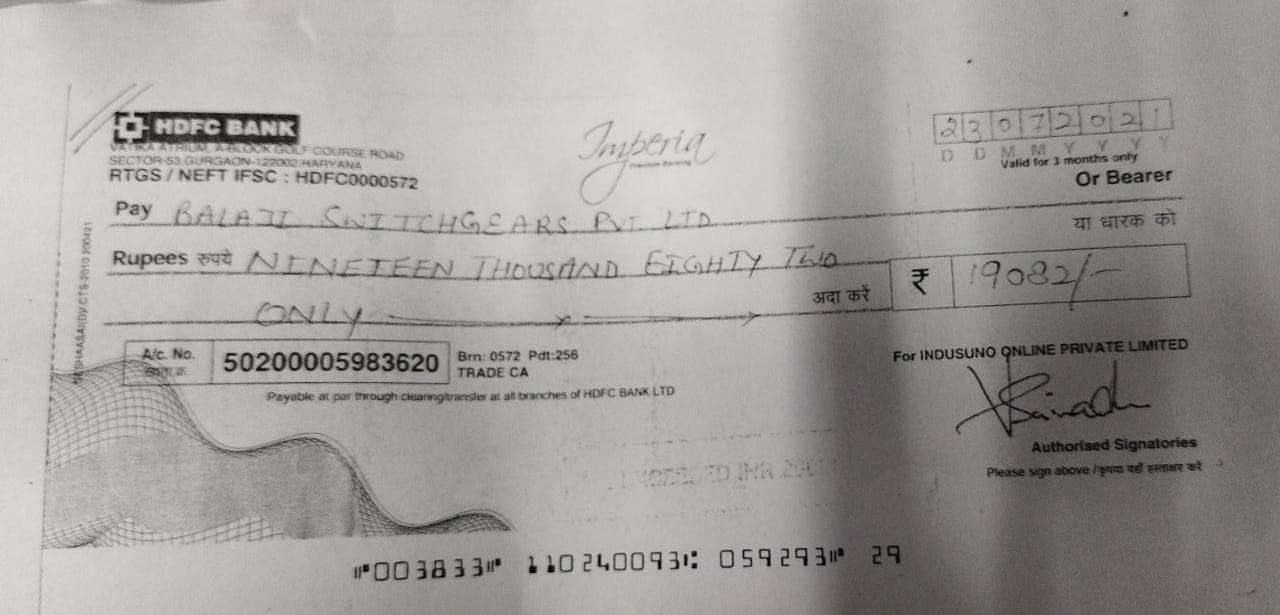 HDFC BANK
VATIKA ATRIUM, A-BLOCK GOLF COURSE ROAD
SECTOR-53 GURGAON-122002 HARYANA
RTGS / NEFT IFSC : HDFC0000572
Imperia
Premium Banking
23072021
D D M M Y Y Y Y
Valid for 3 months only
Or Bearer
या धारक को
Pay BALAJI SWITCHGEARS PVT. LTD
Rupees रुपये NINETEEN THOUSAND EIGHTY TWO
ONLY
अदा करें
₹ 19082/-
A/c. No. 50200005983620
Brn: 0572 Pdt:256
TRADE CA
Payable at par through clearing/transfer at all branches of HDFC BANK LTD
For INDUSUNO ONLINE PRIVATE LIMITED
Authorised Signatories
Please sign above /कृपया यहाँ हस्ताक्षर करें
⑈003833⑈ 110240093⑆ 059293⑈ 29